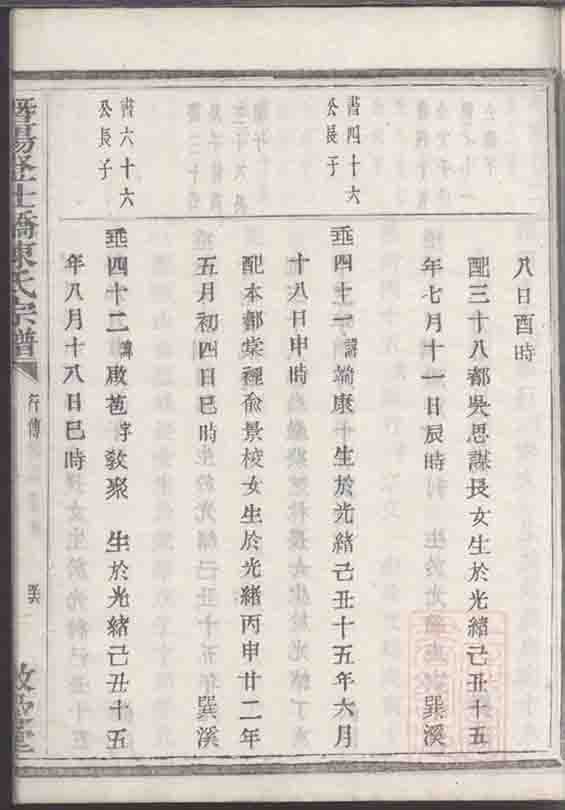 八日酉時
配三十八都吳思謀長女生於光緒己丑十五
年七月十一日辰時 巽溪
書四十六
公長子
垂四十一諱端康 生於光緒己丑十五年六月
十八日申時
配本都棠裡俞景校女生於光緒丙申廿二年
五月初四日巳時 巽溪
書六十六
公長子
垂四十二諱啟苞字敦聚 生於光緒己丑十五
年八月十八日巳時
暨陽 橋陳氏宗譜 行傳